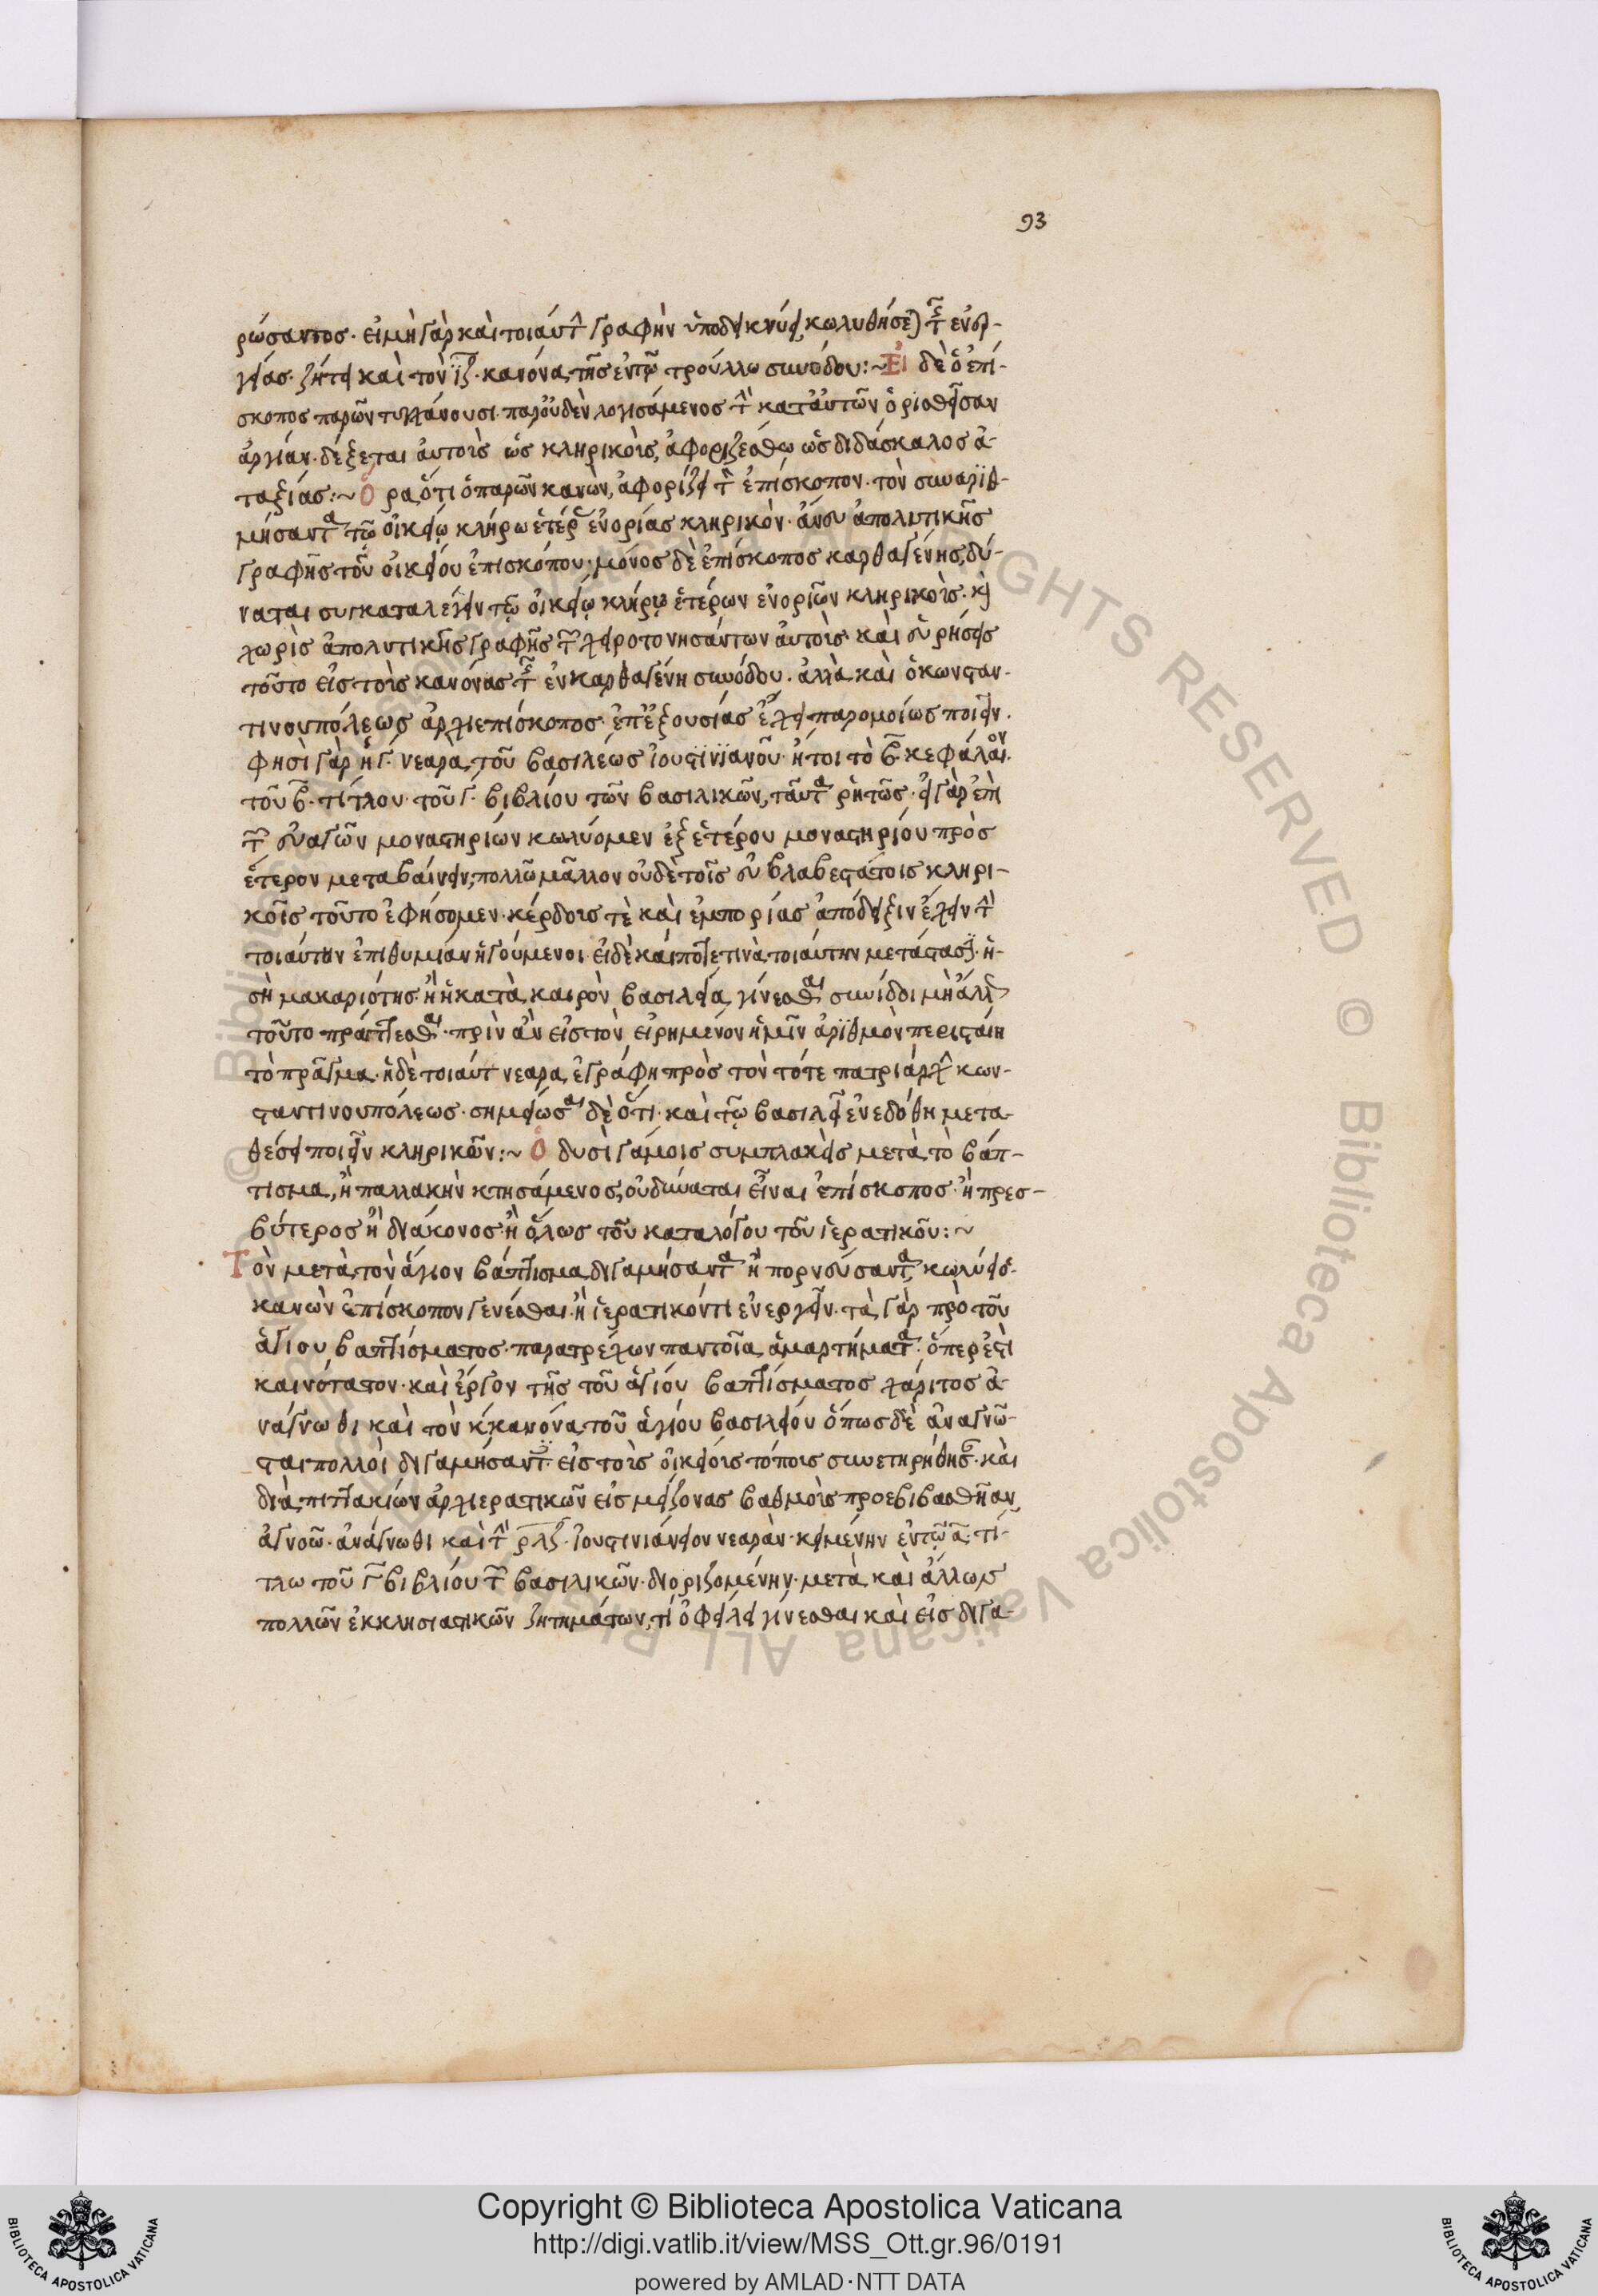 93
ρώσαντος. εἰ μὴ γὰρ καὶ τοιαύτην γραφὴν ὑποδεικνύει, κωλυθήσεται τῆς ἐνερ-
γείας. ζήτει καὶ τὸν ιζ. κανόνα τῆς ἐν τῷ τρούλλω συνόδου:~ Εἰ δὲ ὁ ἐπί-
σκοπος παρῶν τυγχάνουσι. παρ' οὐδὲν λογισάμενος τὴν κατ' αὐτῶν ὁρισθεῖσαν
ἀργίαν. δέξεται αὐτοὺς ὡς κληρικοὺς, ἀφοριζέσθω ὡς διδάσκαλος ἀ-
ταξίας:~ Ὅρα, ὅτι ὁ παρῶν κανὼν, ἀφορίζει τὸν ἐπίσκοπον. τὸν συναριθ-
μήσαντα τῷ οἰκείῳ κλήρω ἑτέρας ἐνορίας κληρικὸν. ἄνευ ἀπολυτικῆς
γραφῆς τοῦ οἰκείου ἐπισκόπου. μόνος δὲ ἐπίσκοπος καρθαγένης, δύ-
ναται συγκαταλέγειν τῷ οἰκείῳ κλήρῳ ἑτέρων ἐνοριῶν κληρικοὺς. καὶ
χωρὶς ἀπολυτικῆς γραφῆς τῶν χειροτονησάντων αὐτοὺς. καὶ εὑρήσεις
τοῦτο εἰς τοὺς κανόνας τῆς ἐν καρθαγένη συνόδου. ἀλλὰ καὶ ὁ κωνσταν-
τινουπόλεως ἀρχιεπίσκοπος. ἐπ' ἐξουσίας ἔχει παρομοίως ποιεῖν.
φησὶ γὰρ ἡ γ. νεαρὰ, τοῦ βασιλέως ἰουστινιανοῦ. ἤτοι τὸ β. κεφάλαιον.
τοῦ β. τίτλου. τοῦ γ. βιβλίου τῶν βασιλικῶν, ταῦτα ῥητῶς. εἰ γὰρ ἐπὶ
τῶν εὐαγῶν μοναστηρίων κωλύομεν ἐξ ἑτέρου μοναστηρίου πρὸς
ἕτερον μεταβαίνειν, πολλῶ μᾶλλον οὐδὲ τοῖς εὐλαβεστάτοις κληρι-
κοῖς τοῦτο ἐφήσομεν. κέρδους τὲ καὶ ἐμπορίας ἀπόδειξιν ἔχειν τὴν
τοιαύτην ἐπιθυμίαν ἡγούμενοι. εἰ δὲ καί ποτε τινὰ τοιαύτην μετάστασιν. ἡ
σὴ μακαριότης. ἢ ἡ κατὰ καιρὸν βασιλεία, γίνεσθαι συνίδοι μὴ ἄλλως
τοῦτο πράττεσθαι. πρὶν ἂν εἰς τὸν εἰρημένον ἡμῖν ἀριθμὸν περισταίη
τὸ πρᾶγμα. ἡ δὲ τοιαύτη νεαρα, ἐγράφη πρὸς τὸν τότε πατριάρχην κων-
σταντινουπόλεως. σημείωσαι δὲ ὅτι. καὶ τῷ βασιλεῖ ἐνεδόθη μετα-
θέσει ποιεῖν κληρικῶν:~ Ὁ δυσὶ γάμοις συμπλακεὶς μετὰ τὸ βάπ-
τισμα, ἢ παλλακὴν κτησάμενος, οὐ δύναται εἶναι ἐπίσκοπος. ἢ πρεσ-
βύτερος ἢ διάκονος. ἢ ὅλως τοῦ καταλόγου τοῦ ἱερατικοῦ:~
Τὸν μετὰ τὸν ἅγιον βάπτισμα διγαμήσαντα ἢ πορνεύσαντα, κωλύει ὁ
κανὼν ἐπίσκοπον γενέσθαι. ἢ ἱερατικόν τι ἐνεργεῖν. τὰ γὰρ πρὸ τοῦ
ἁγίου βαπτίσματος. παρατρέχων παντοῖα ἁμαρτήματα. ὅπερ ἐστὶ
καινότατον. καὶ ἔργον τῆς τοῦ ἁγίου βαπτίσματος χάριτος ἀ-
νάγνωθι καὶ τὸν κ. κανόνα τοῦ ἁγίου βασιλείου ὅπως δὲ ἀναγνῶ-
σται πολλοὶ διγαμήσαντες. εἰς τοὺς οἰκείους τόπους συνετηρήθησαν. καὶ
διὰ πιττακίων ἀρχιερατικῶν εἰς μείζονας βαθμοὺς προεβιβασθῆσαν,
ἀγνοῶ. ἀνάγνωθι καὶ τὴν ρλζ. ἰουστινιάνειον νεαρὰν. κειμένην ἐν τῷ α. τί-
τλω τοῦ γ βιβλίου τῶν βασιλικῶν. διοριζομένην. μετὰ καὶ ἄλλων
πολλῶν ἐκκλησιαστικῶν ζητημάτων, τί ὀφείλει γίνεσθαι καὶ εἰς διγα-
Copyright © Biblioteca Apostolica Vaticana
http://digi.vatlib.it/view/MSS_Ott.gr.96/0191
powered by AMLAD·NTT DATA
BIBLIOTECA APOSTOLICA VATICANA
BIBLIOTECA APOSTOLICA VATICANA
© Biblioteca Apostolica Vaticana ALL RIGHTS RESERVED